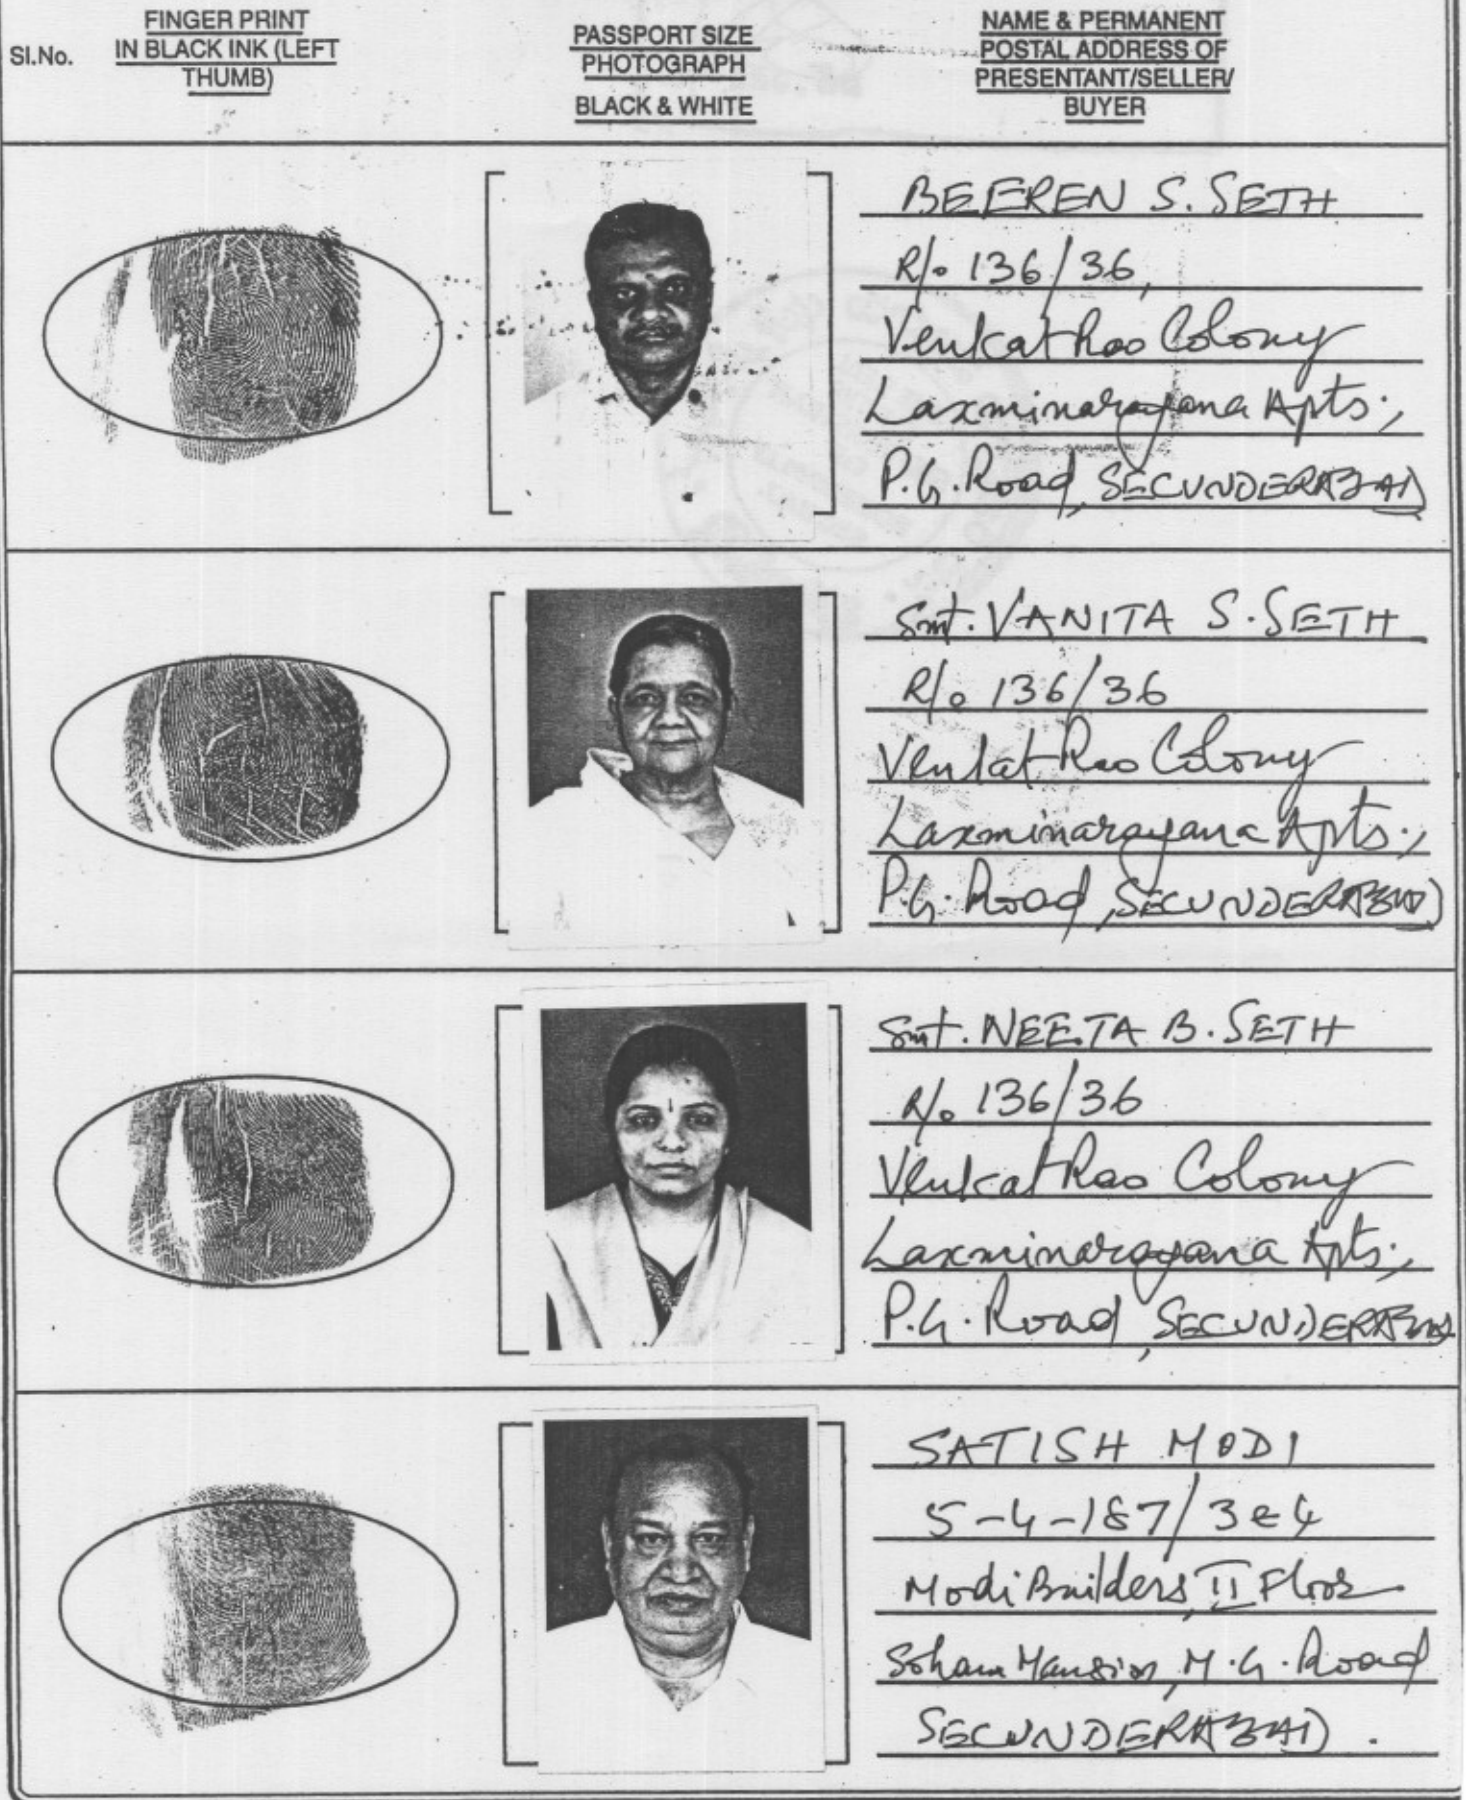 Sl.No.
FINGER PRINT
IN BLACK INK (LEFT
THUMB)
PASSPORT SIZE
PHOTOGRAPH
BLACK & WHITE
NAME & PERMANENT
POSTAL ADDRESS OF
PRESENTANT/SELLER/
BUYER
BEEREN S. SETH
R/o 136/36,
Venkat Rao Colony
Laxminarayana Apts.,
P.G. Road, SECUNDERABAD
Smt. VANITA S. SETH
R/o 136/36
Venkat Rao Colony
Laxminarayana Apts.,
P.G. Road, SECUNDERABAD
Smt. NEETA B. SETH
R/o 136/36
Venkat Rao Colony
Laxminarayana Apts.,
P.G. Road, SECUNDERABAD
SATISH MODI
5-4-187/3&4
Modi Builders, II Floor
Soham Mansion, M.G. Road
SECUNDERABAD.